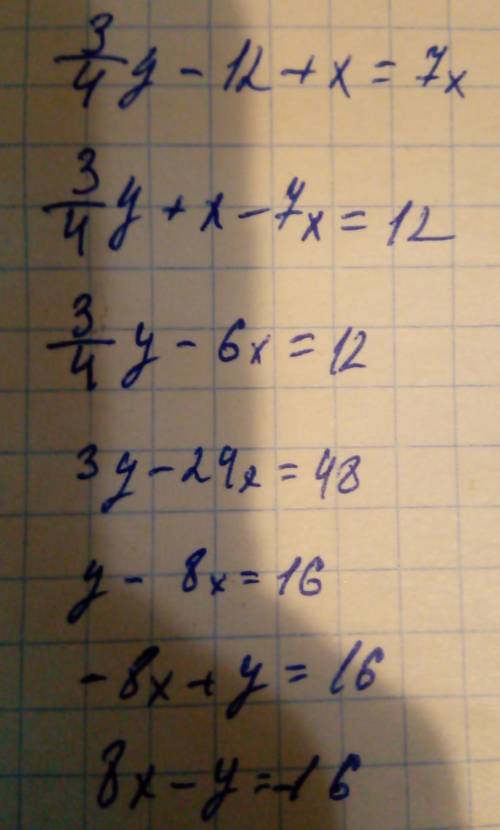 3/4 y - 12 + x = 7x
3/4 y + x - 7x = 12
3/4 y - 6x = 12
3y - 24x = 48
y - 8x = 16
-8x + y = 16
8x - y = -16